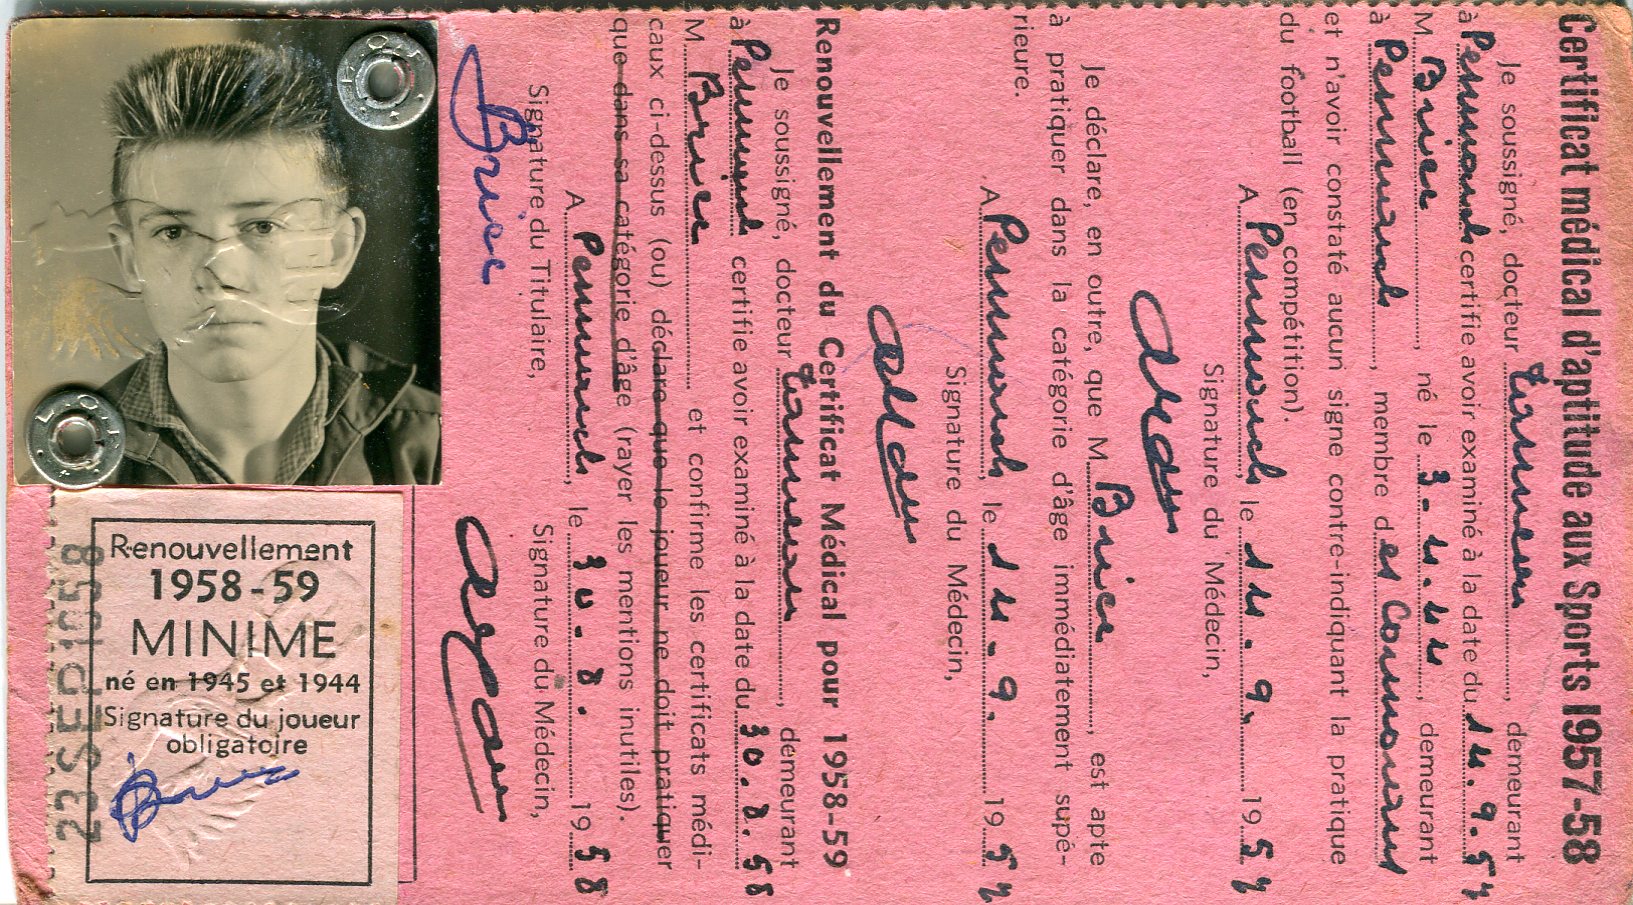 Certificat médical d'aptitude aux Sports 1957-58
Je soussigné, docteur Tanneau, demeurant
à Penmarch certifie avoir examiné à la date du 14.9.57
M. Brice, né le 3.4.44, demeurant
à Penmarch, membre des Cormorans
et n'avoir constaté aucun signe contre-indiquant la pratique
du football (en compétition).
A Penmarch, le 14.9. 1957
Signature du Médecin,
Je déclare, en outre, que M. Brice, est apte
à pratiquer dans la catégorie d'âge immédiatement supé-
rieure.
A Penmarch, le 14.9. 1957
Signature du Médecin,
Renouvellement du Certificat Médical pour 1958-59
Je soussigné, docteur Tanneau, demeurant
à Penmarch certifie avoir examiné à la date du 30.8.58
M. Brice et confirme les certificats médi-
caux ci-dessus (ou) déclare que le joueur ne doit pratiquer
que dans sa catégorie d'âge (rayer les mentions inutiles).
A Penmarch, le 30.8. 1958
Signature du Titulaire, Signature du Médecin,
Brice
Renouvellement
1958-59
MINIME
né en 1945 et 1944
Signature du joueur
obligatoire
23 SEP 1958